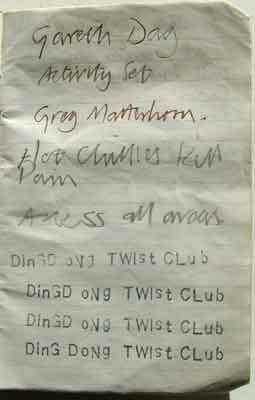 Gareth Dag
Activity Set
Greg Matterhorn.
Hot Chillies kill
Pain
Access all areas
DinGD oNg TWIst CLub
DinGD oNg TWIst CLub
DinGD oNg TWIst CLub
DinG DoNg TWIst CLub